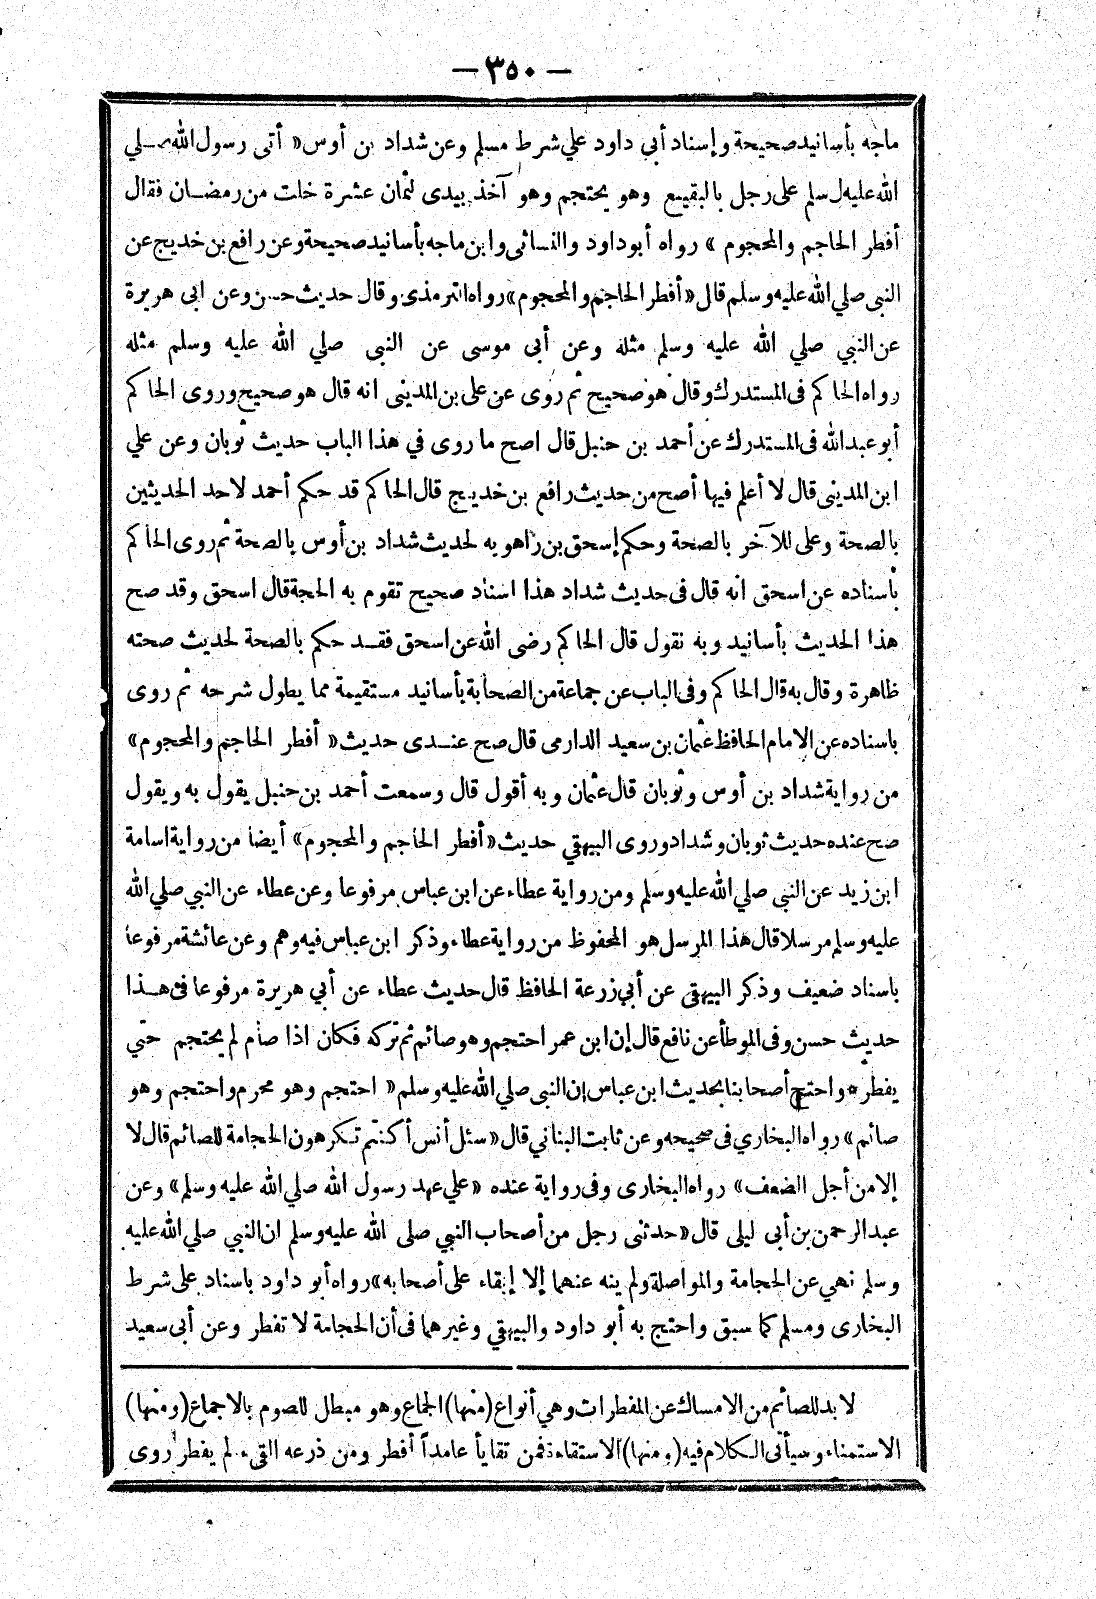 — ٣٥٠ —
ماجه بأسانيد صحيحة وإسناد أبي داود علي شرط مسلم وعن شداد بن أوس « أتى رسول الله صلي
الله عليه وسلم على رجل بالبقيع وهو يحتجم وهو آخذ بيدى لثمان عشرة خلت من رمضان فقال
أفطر الحاجم والمحجوم » رواه أبو داود والنسائى وابن ماجه بأسانيد صحيحة وعن رافع بن خديج عن
النبى صلي الله عليه وسلم قال « أفطر الحاجم والمحجوم» رواه الترمذى وقال حديث حسن وعن ابى هريرة
عن النبي صلي الله عليه وسلم مثله وعن أبى موسى عن النبى صلي الله عليه وسلم مثله
رواه الحاكم فى المستدرك وقال هو صحيح ثم روى عن على بن المدينى انه قال هو صحيح وروى الحاكم
أبو عبد الله فى المستدرك عن أحمد بن حنبل قال اصح ما روى في هذا الباب حديث ثوبان وعن علي
ابن المدينى قال لا أعلم فيها أصح من حديث رافع بن خديج قال الحاكم قد حكم أحمد لاحد الحديثين
بالصحة وعلى للآخر بالصحة وحكم إسحق بن راهويه لحديث شداد بن أوس بالصحة ثم روى الحاكم
بأسناده عن اسحق انه قال فى حديث شداد هذا اسناد صحيح تقوم به الحجة قال اسحق وقد صح
هذا الحديث بأسانيد وبه نقول قال الحاكم رضى الله عن اسحق فقد حكم بالصحة لحديث صحته
ظاهرة وقال به قال الحاكم وفى الباب عن جماعة من الصحابة بأسانيد مستقيمة مما يطول شرحه ثم روى
باسناده عن الامام الحافظ عثمان بن سعيد الدارمى قال صح عندى حديث « أفطر الحاجم والمحجوم »
من رواية شداد بن أوس وثوبان قال عثمان وبه أقول قال وسمعت أحمد بن حنبل يقول به ويقول
صح عنده حديث ثوبان وشداد وروى البيهقي حديث « أفطر الحاجم والمحجوم » أيضا من رواية اسامة
ابن زيد عن النبى صلي الله عليه وسلم ومن رواية عطاء عن ابن عباس مرفوعا وعن عطاء عن النبي صلي الله
عليه وسلم مرسلا قال هذا المرسل هو المحفوظ من رواية عطاء وذكر ابن عباس فيه وهم وعن عائشة مرفوعا
باسناد ضعيف وذكر البيهقى عن أبي زرعة الحافظ قال حديث عطاء عن أبي هريرة مرفوعا فى هذا
حديث حسن وفى الموطأ عن نافع قال إن ابن عمر احتجم وهو صائم ثم تركه فكان اذا صام لم يحتجم حتي
يفطر * واحتج أصحابنا بحديث ابن عباس إن النبى صلي الله عليه وسلم « احتجم وهو محرم واحتجم وهو
صائم » رواه البخاري فى صحيحه وعن ثابت البناني قال « سئل أنس أكنتم تكرهون الحجامة للصائم قال لا
إلا من أجل الضعف » رواه البخارى وفى رواية عنده « علي عهد رسول الله صلي الله عليه وسلم » وعن
عبد الرحمن بن أبى ليلى قال « حدثنى رجل من أصحاب النبي صلى الله عليه وسلم ان النبي صلي الله عليه
وسلم نهي عن الحجامة والمواصلة ولم ينه عنهما إلا إبقاء علي أصحابه » رواه أبو داود باسناد على شرط
البخارى ومسلم كما سبق واحتج به أبو داود والبيهقي وغيرهما فى أن الحجامة لا تفطر وعن أبى سعيد
لا بد للصائم من الامساك عن المفطرات وهي أنواع (منها) الجماع وهو مبطل للصوم بالاجماع (ومنها)
الاستمناء وسيأتى الكلام فيه (ومنها) الاستقاءة فمن تقايأ عامداً أفطر ومن ذرعه القىء لم يفطر روى